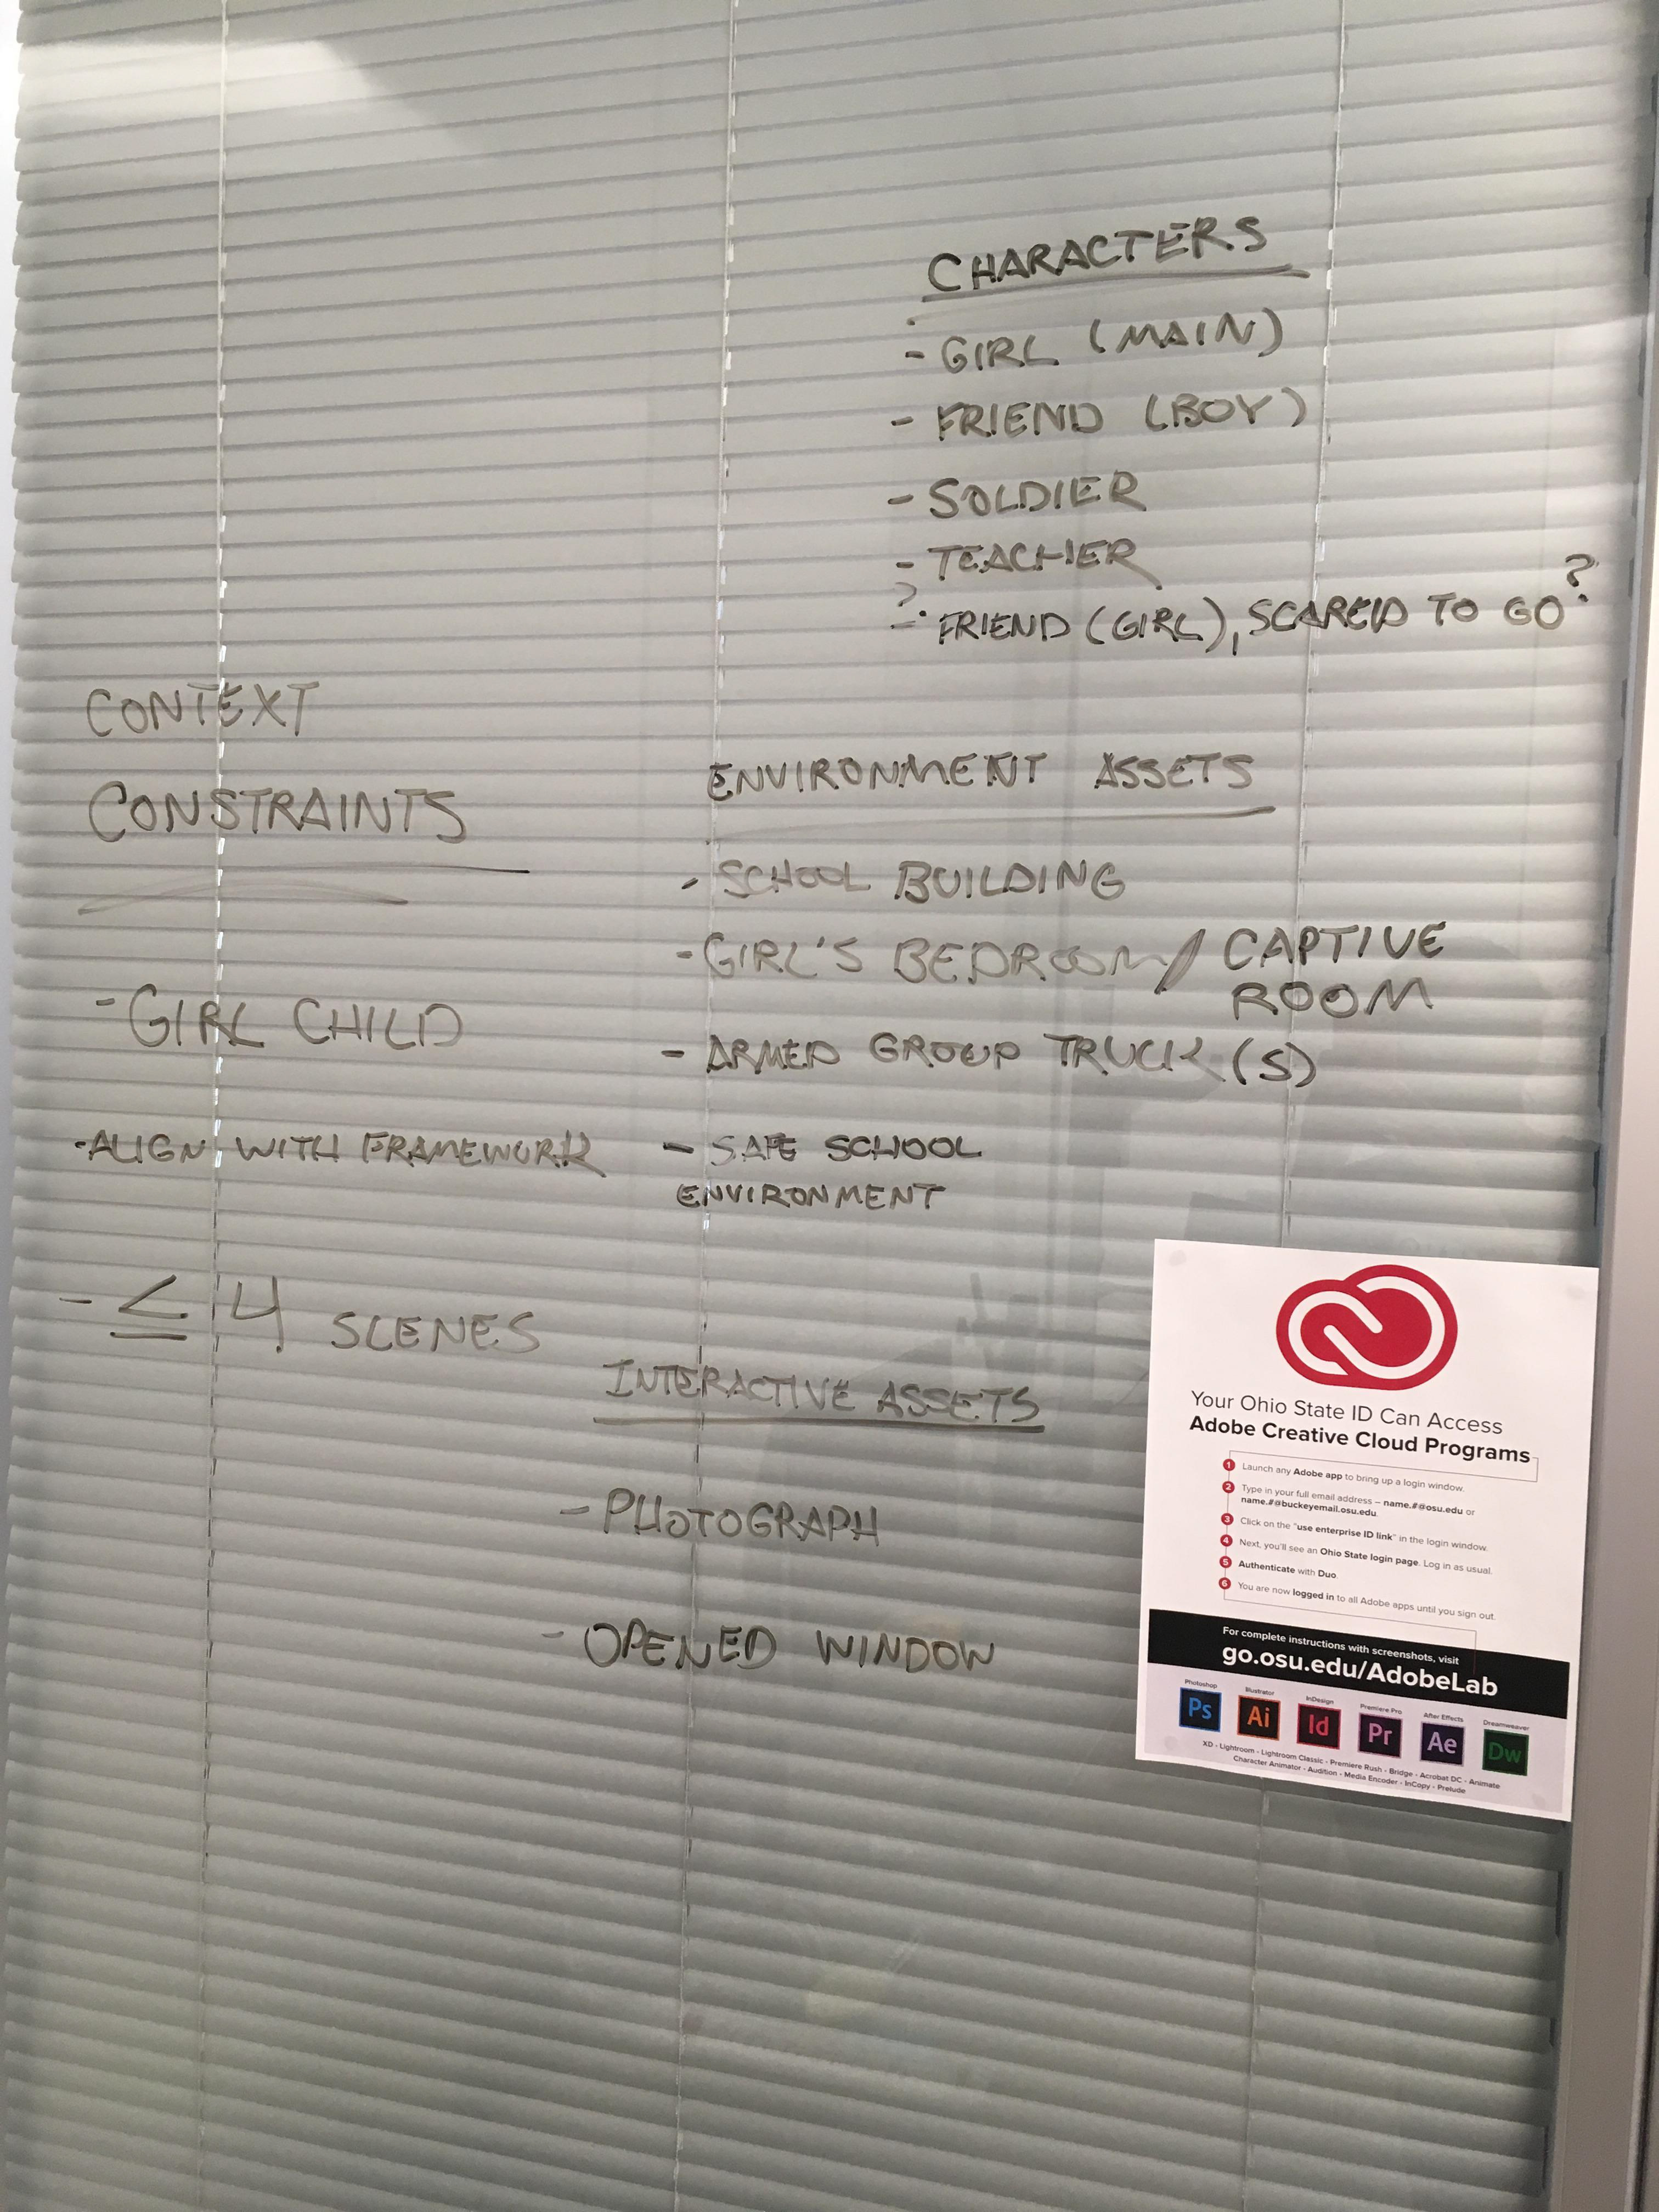 CHARACTERS
- GIRL (MAIN)
- FRIEND (BOY)
- SOLDIER
- TEACHER
? - FRIEND (GIRL), SCARED TO GO?
CONTEXT
CONSTRAINTS
- GIRL CHILD
- ALIGN WITH FRAMEWORK
- ≤ 4 SCENES
ENVIRONMENT ASSETS
- SCHOOL BUILDING
- GIRL'S BEDROOM / CAPTIVE
ROOM
- ARMED GROUP TRUCK(S)
- SAFE SCHOOL
ENVIRONMENT
INTERACTIVE ASSETS
- PHOTOGRAPH
- OPENED WINDOW
Your Ohio State ID Can Access
Adobe Creative Cloud Programs
1 Launch any Adobe app to bring up a login window.
2 Type in your full email address – name.#@osu.edu or
name.#@buckeyemail.osu.edu.
3 Click on the "use enterprise ID link" in the login window.
4 Next, you'll see an Ohio State login page. Log in as usual.
5 Authenticate with Duo.
6 You are now logged in to all Adobe apps until you sign out.
For complete instructions with screenshots, visit
go.osu.edu/AdobeLab
Photoshop Illustrator InDesign Premiere Pro After Effects Dreamweaver
Ps Ai Id Pr Ae Dw
XD - Lightroom - Lightroom Classic - Premiere Rush - Bridge - Acrobat DC - Animate
Character Animator - Audition - Media Encoder - InCopy - Prelude